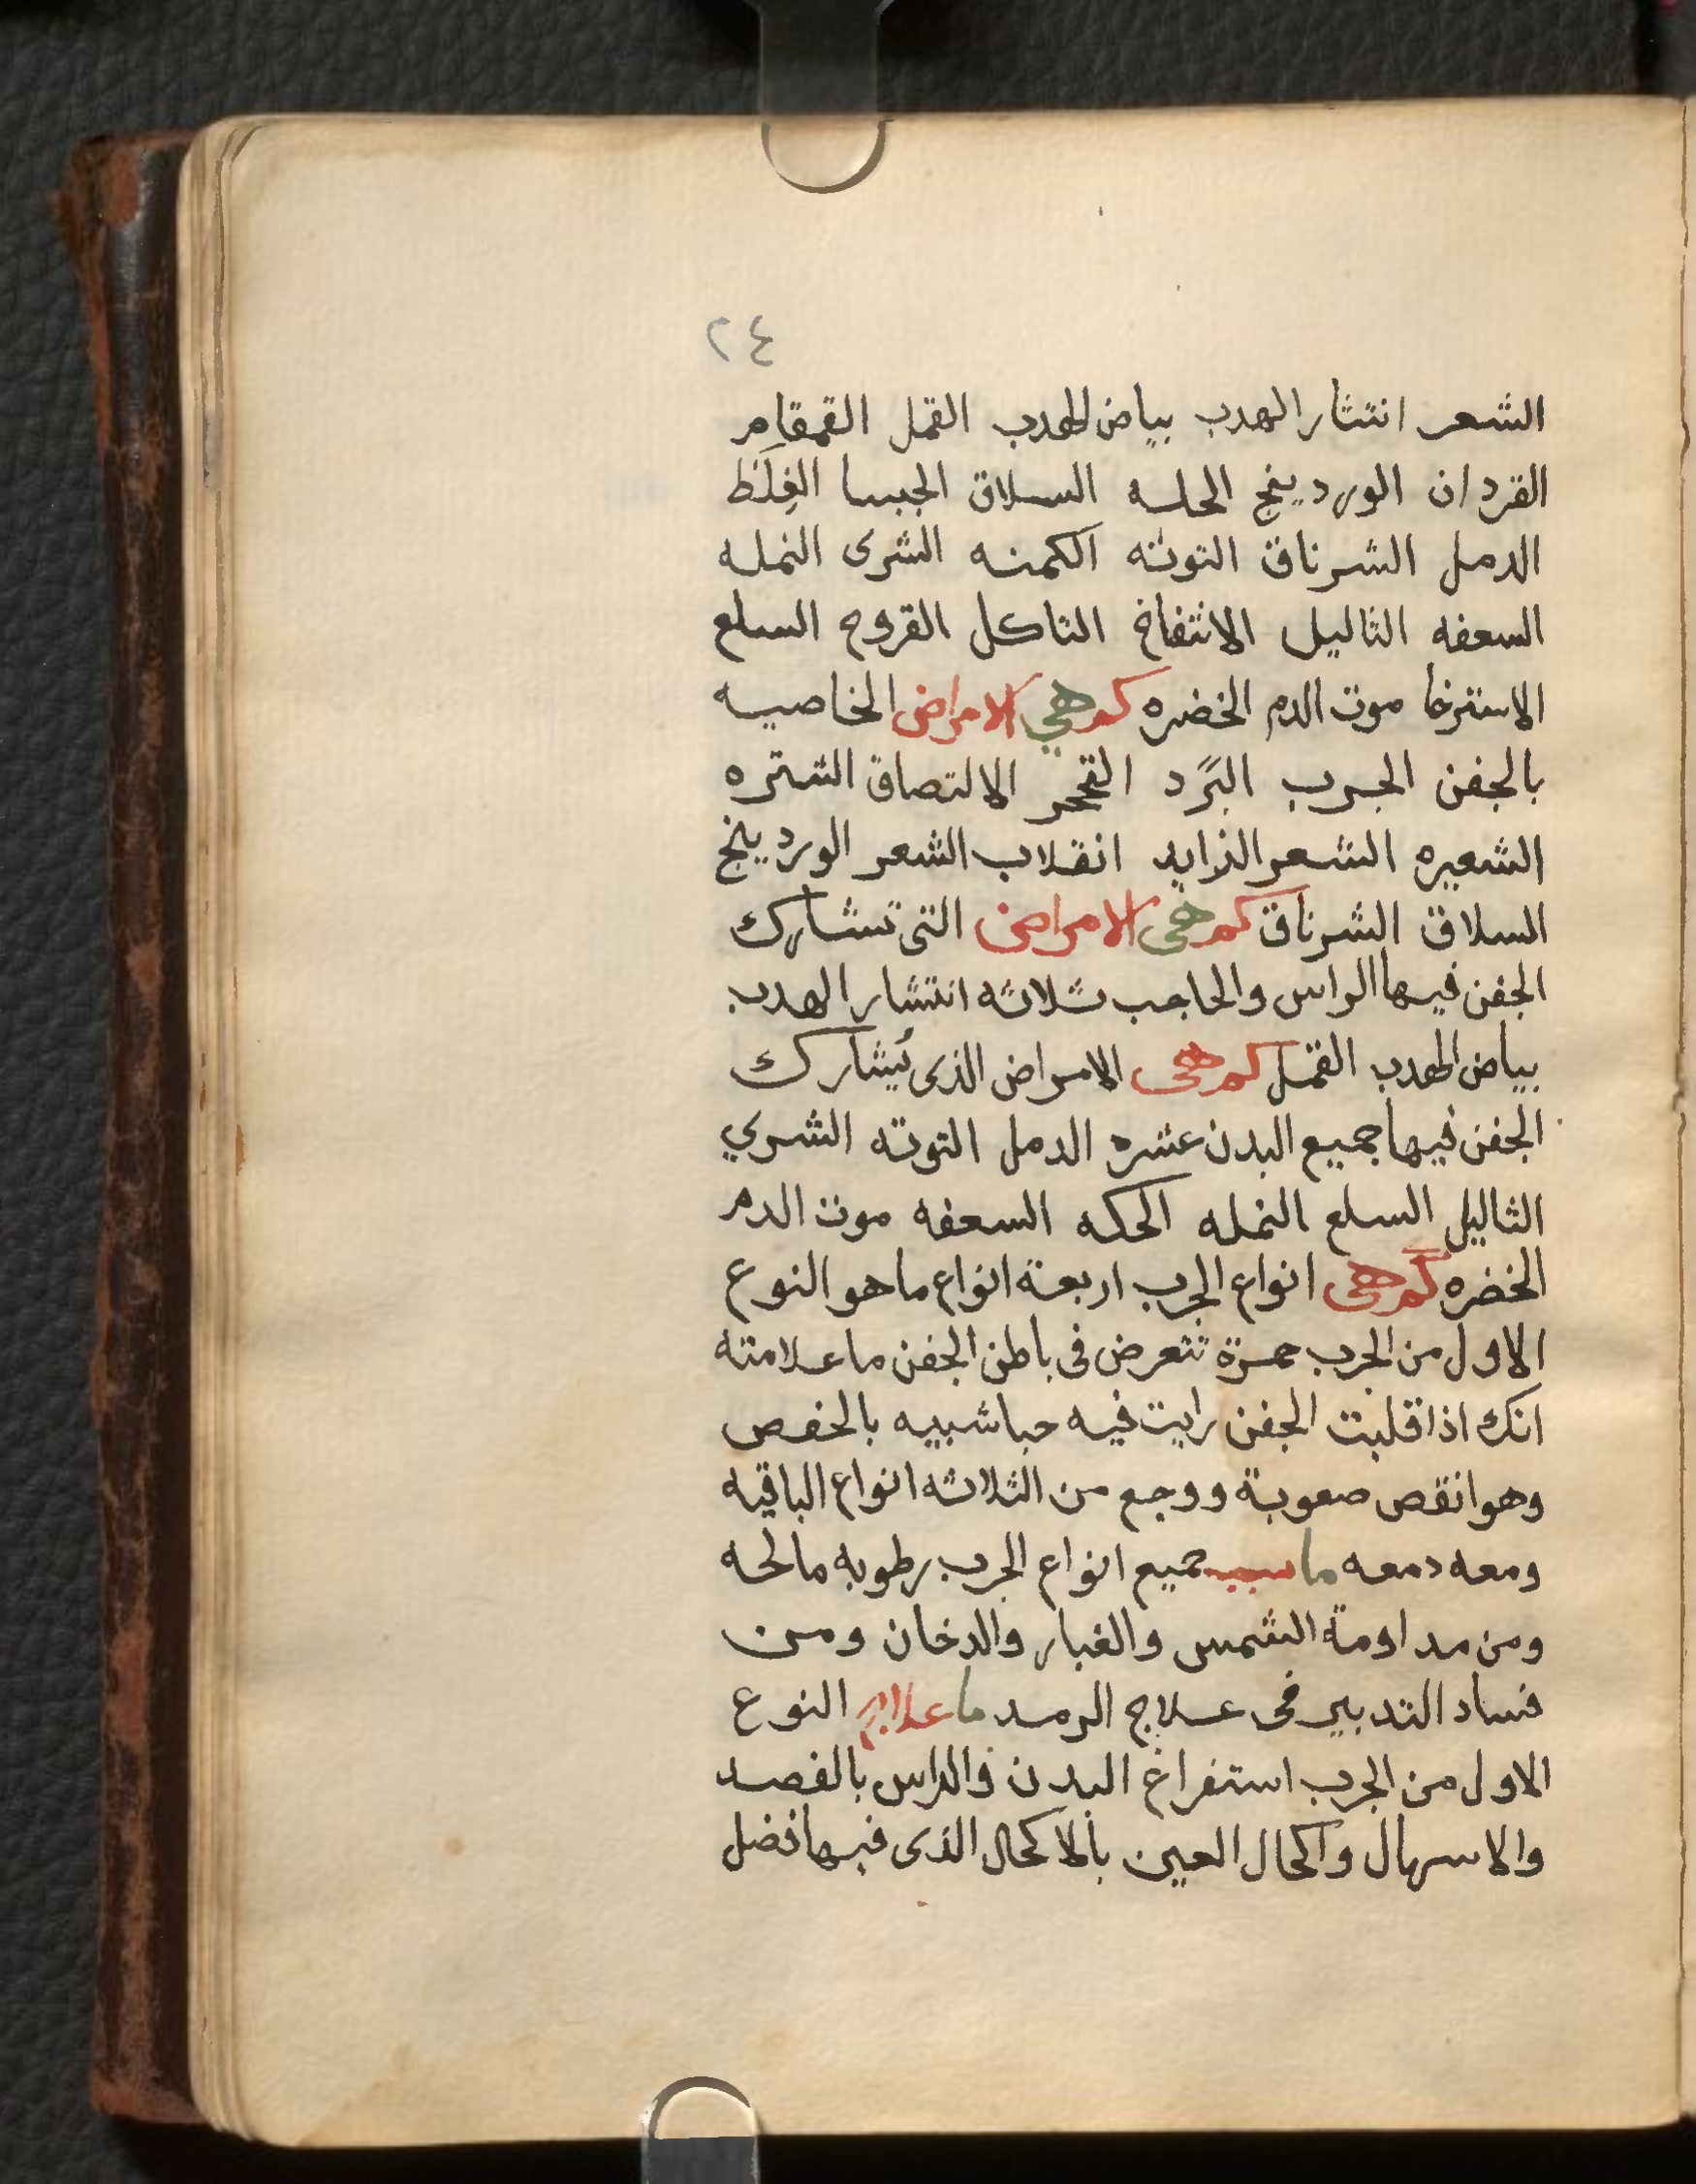 ٢٤
الشعر انتثار الهدب بياض الهدب القمل القمقام
القردان الوردينج الحكه السلاق الجسا الغِلَظ
الدمل الشرناق التوته الكمنه الشرى النمله
السعفه الثاليل الانتفاخ التاكل القروح السلع
الاسترخا موت الدم الخضره كم هي الامراض الخاصيه
بالجفن الجرب البَرَد التحجر الالتصاق الشتره
الشعيره الشعر الزايد انقلاب الشعر الوردينج
السلاق الشرناق كم هى الامراض التى تشارك
الجفن فيها الراس والحاجب ثلاثه انتثار الهدب
بياض الهدب القمل كم هى الامراض الذى يُشارك
الجفن فيها جميع البدن عشره الدمل التوته الشري
الثاليل السلع النمله الحكه السعفه موت الدم
الخضره كم هى انواع الجرب اربعة انواع ما هو النوع
الاول من الجرب حمرة تتعرض فى باطن الجفن ما علامته
انك اذا قلبت الجفن رايت فيه حبا شبيه بالخفص
وهو انقص صعوبة ووجع من الثلاثه انواع الباقيه
ومعه دمعه ما سبب جميع انواع الجرب رطوبه مالحه
ومن مداومة الشمس والغبار والدخان ومن
فساد التدبير فى علاج الرمد ما علاج النوع
الاول من الجرب استفراغ البدن والراس بالفصد
والاسهال واكحال العين بالاكحال الذى فيها فضل